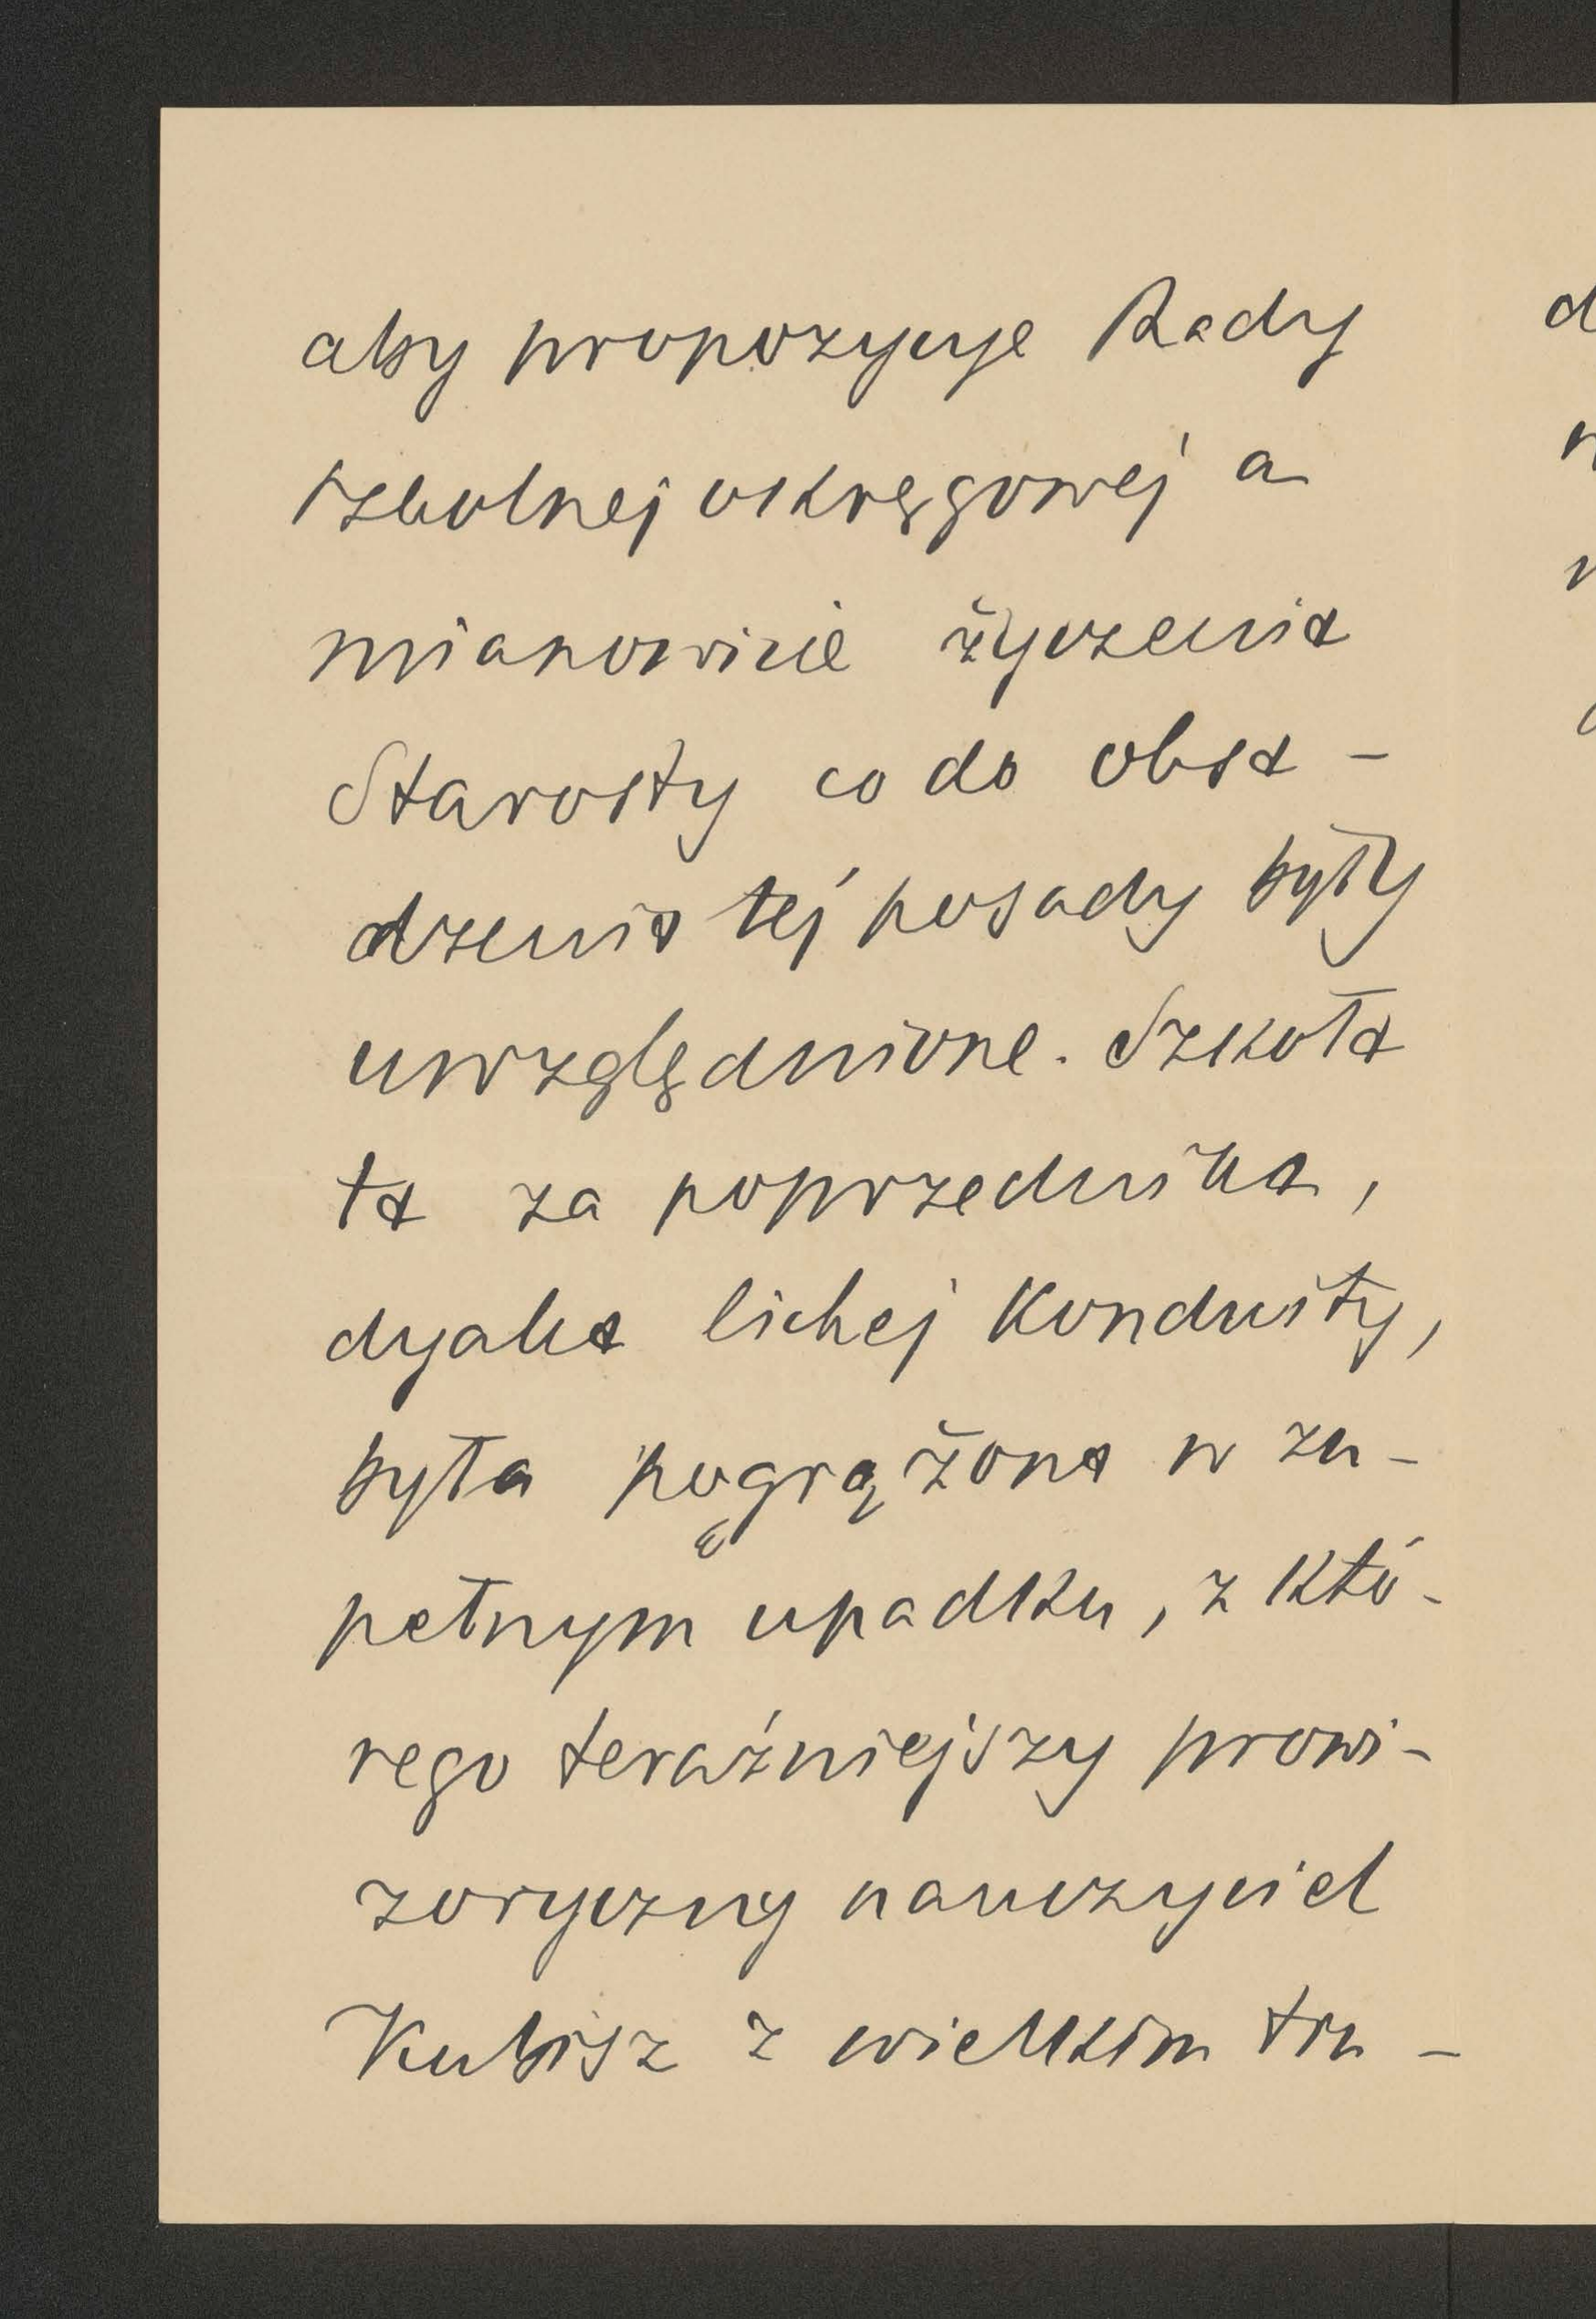 aby propozycye Rady
szkolnej okręgowej a
mianowicie życzenia
Starosty co do obsa-
dzenia téj posady były
uwzględnione. Szkoła
ta za poprzednika,
dyaka lichej konduity,
była pogrążona w zu-
pełnym upadku, z któ-
rego teraźniejszy prowi-
zoryczny nauczyciel
Kubisz z wielkim tru-